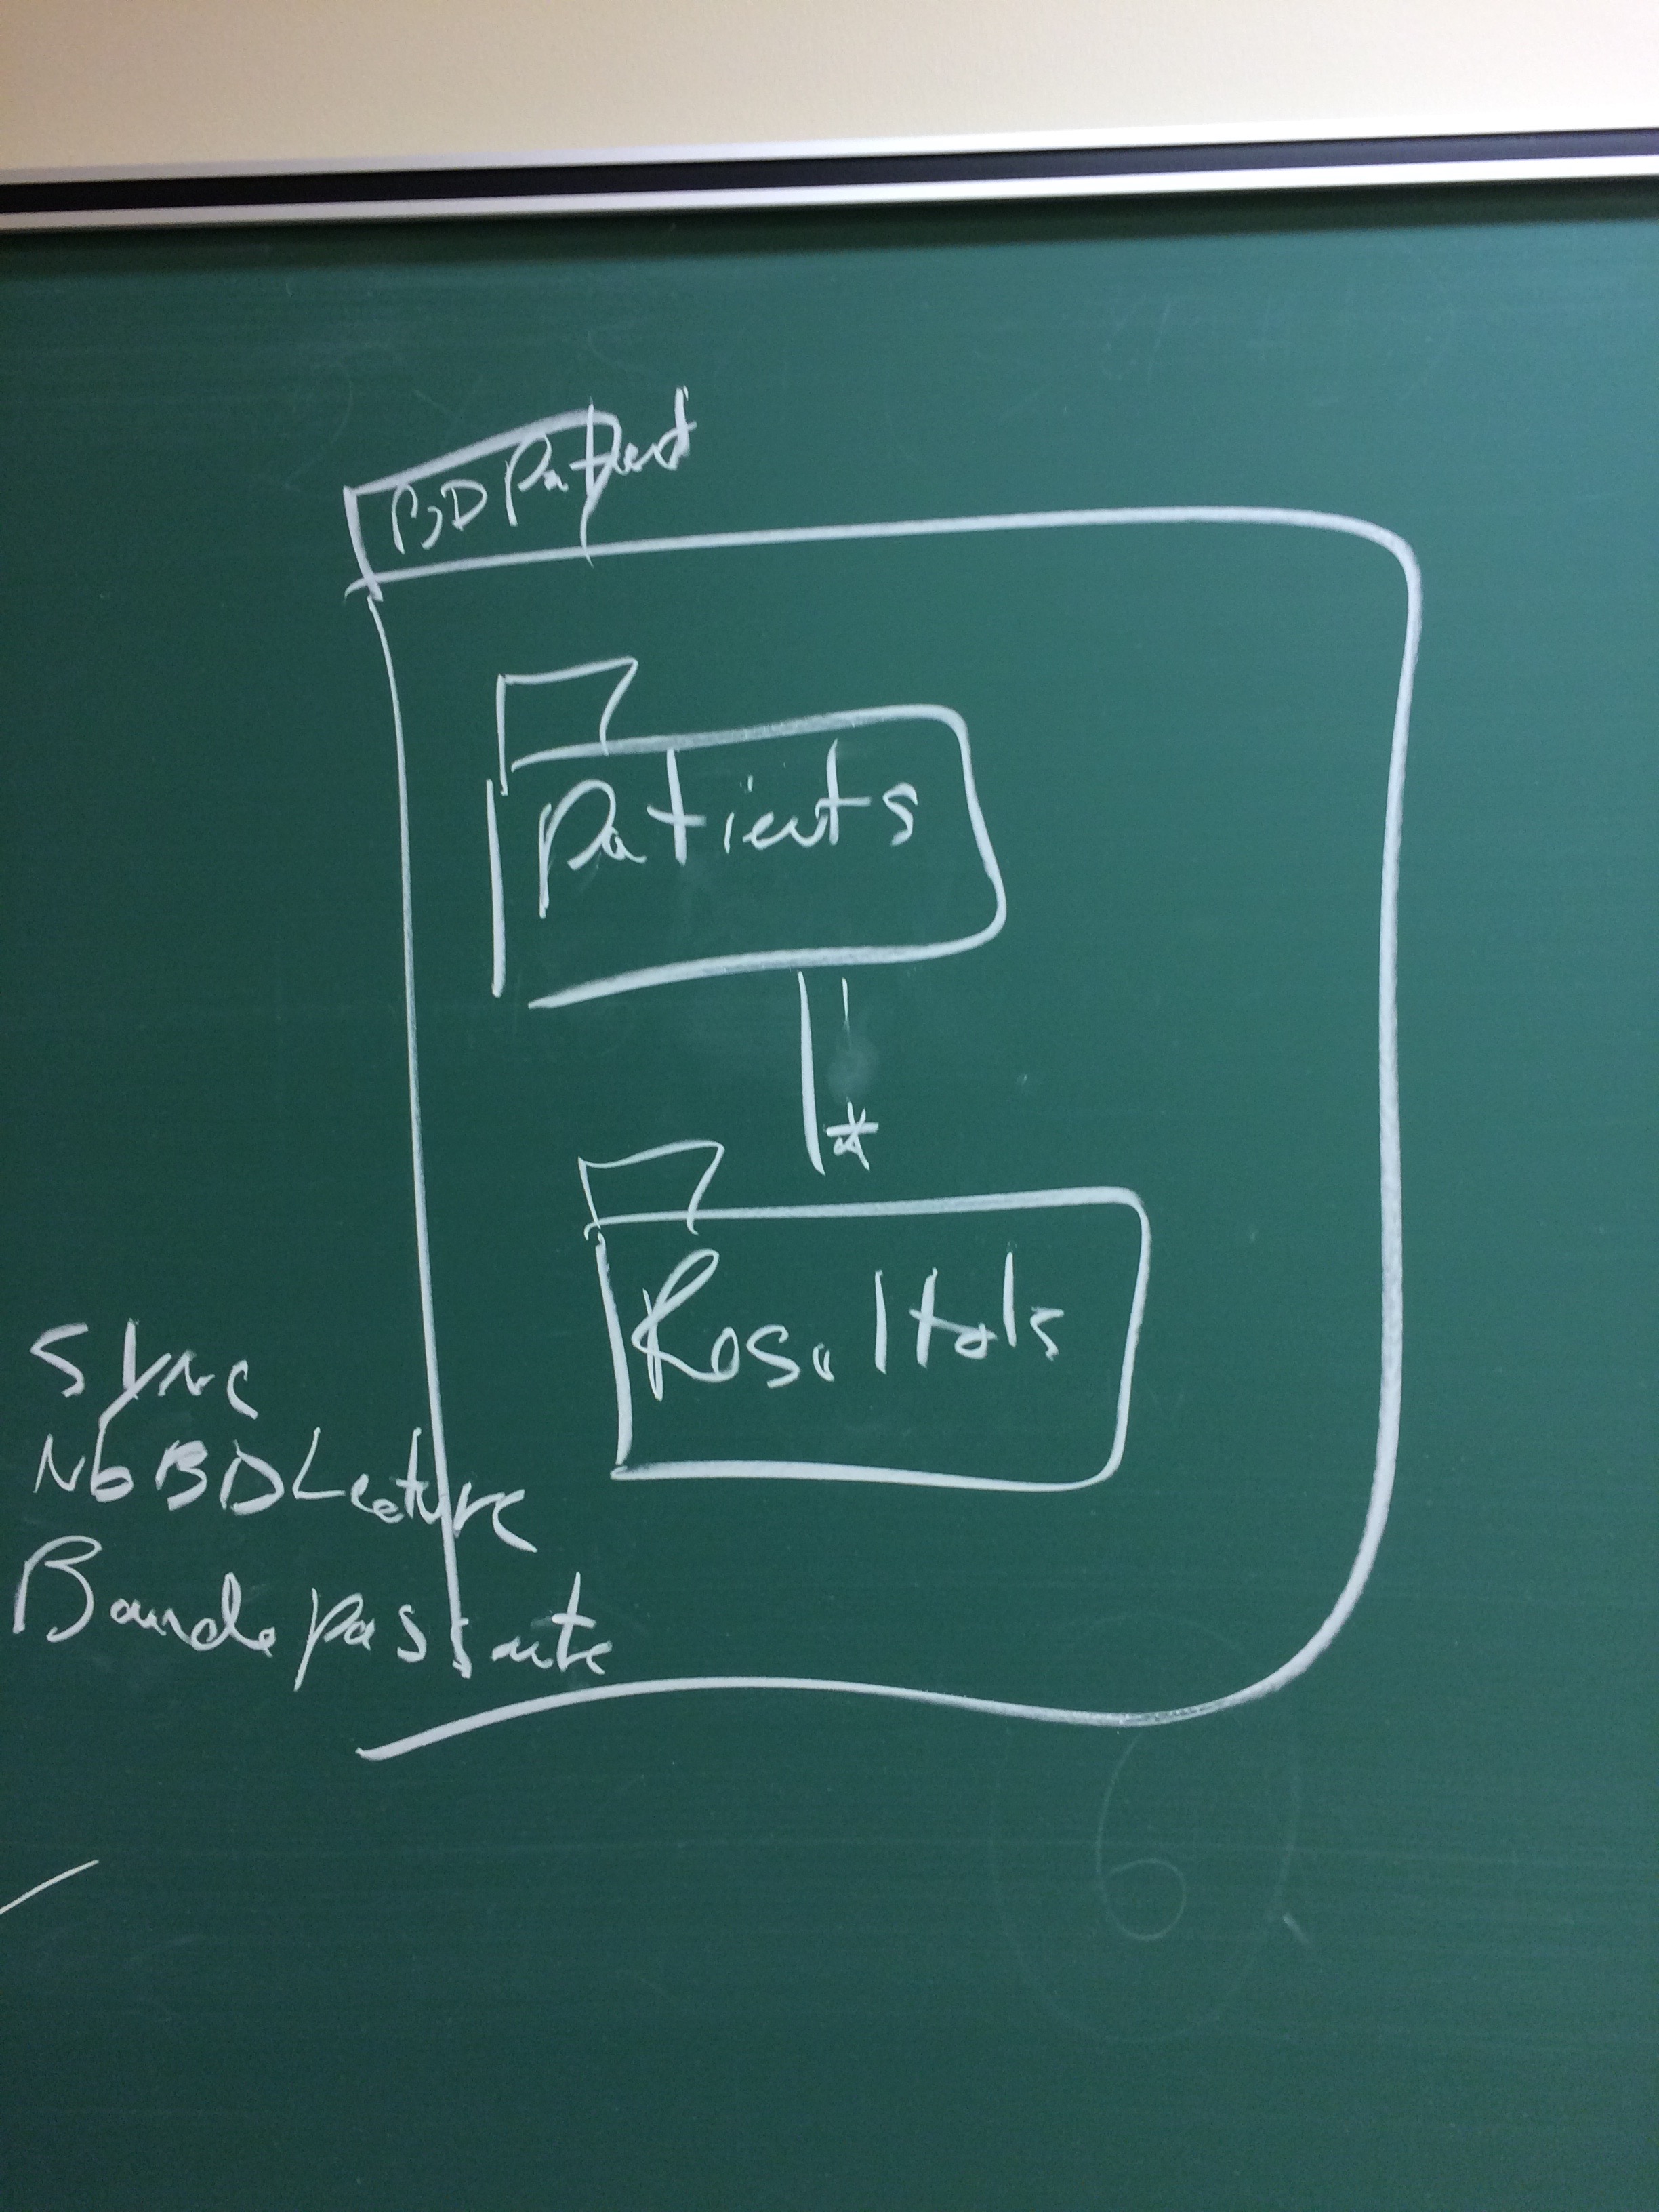 BD Patient
Patients
1
*
Resultats
Sync
Nb BD Lecture
Bande passante
6